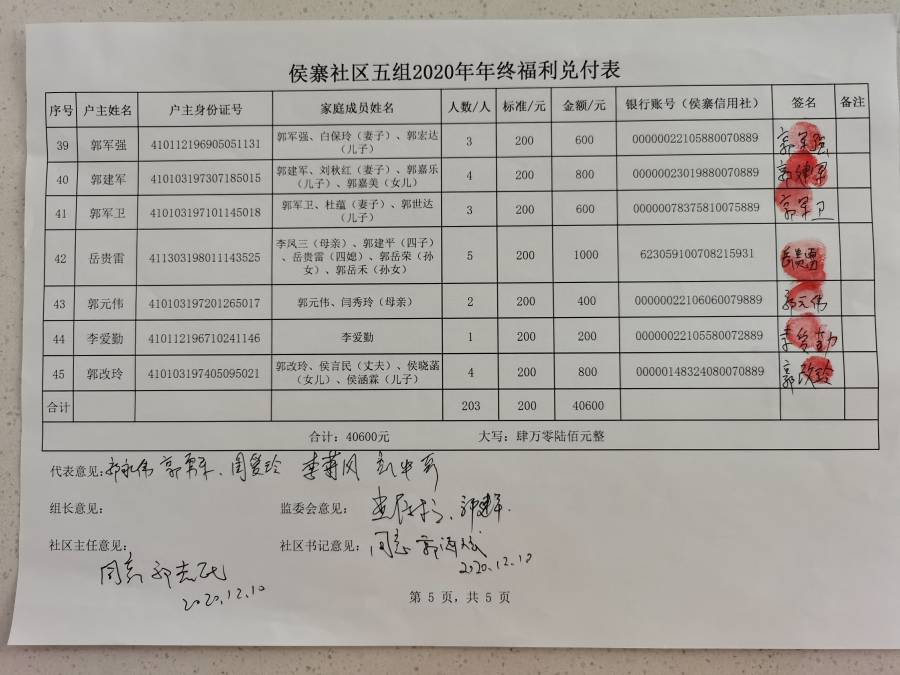 侯寨社区五组2020年年终福利兑付表
序号 户主姓名 户主身份证号 家庭成员姓名 人数/人 标准/元 金额/元 银行账号（侯寨信用社） 签名 备注
39 郭军强 410112196905051131 郭军强、白保玲（妻子）、郭宏达（儿子） 3 200 600 00000022105880070889 郭军强
40 郭建军 410103197307185015 郭建军、刘秋红（妻子）、郭嘉乐（儿子）、郭嘉美（女儿） 4 200 800 00000023019880070889 郭建军
41 郭军卫 410103197101145018 郭军卫、杜蕴（妻子）、郭世达（儿子） 3 200 600 00000078375810075889 郭军卫
42 岳贵雷 411303198011143525 李凤三（母亲）、郭建平（四子）、岳贵雷（四媳）、郭岳荣（孙女）、郭岳禾（孙女） 5 200 1000 623059100708215931 岳贵雷
43 郭元伟 410103197201265017 郭元伟、闫秀玲（母亲） 2 200 400 00000022106060079889 郭元伟
44 李爱勤 410112196710241146 李爱勤 1 200 200 00000022105580072889 李爱勤
45 郭改玲 410103197405095021 郭改玲、侯言民（丈夫）、侯晓菡（女儿）、侯涵霖（儿子） 4 200 800 00000148324080070889 郭改玲
合计 203 200 40600
合计：40600元 大写：肆万零陆佰元整
代表意见：
组长意见： 监委会意见：
社区主任意见： 社区书记意见：同意
同意
2020.12.10
2020.12.10
第 5 页，共 5 页